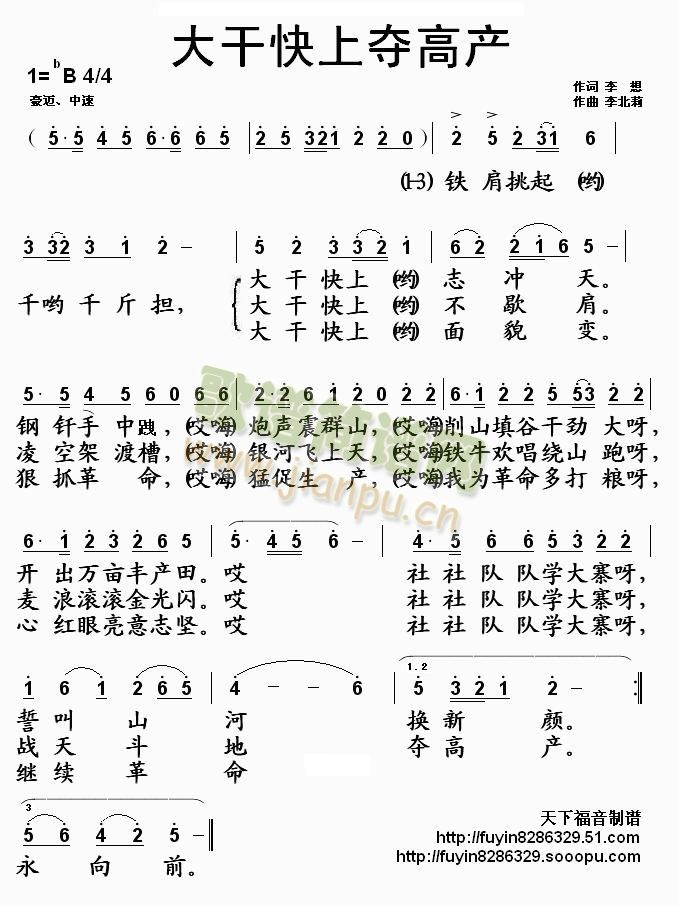 大干快上夺高产
1=ᵇB 4/4
豪迈、中速
作词 李 想
作曲 李北莉
( 5·5 4 5 6·6 6 5 | 2 5 321 2 2 0 ) | 2 5 2 31 6
(1-3) 铁 肩挑起 (哟)
3 32 3 1 2 – | 5 2 3 3 2 1 | 6 2 2 1 6 5 –
千哟 千 斤 担,
大 干 快上 (哟) 志 冲 天。
大 干 快上 (哟) 不 歇 肩。
大 干 快上 (哟) 面 貌 变。
5· 5 4 5 6 0 6 6 | 2·2 6 1 2 0 2 2 | 6·1 5 2 5 53 2 2
钢 钎手 中跩, (艾嗨) 炮声震群山, (艾嗨)削山填谷干劲 大呀,
凌 空架 渡槽, (艾嗨) 银河飞上天, (艾嗨)铁牛欢唱绕山 跑呀,
狠 抓革 命, (艾嗨) 猛促生 产, (艾嗨)我为革命多打 粮呀,
6· 1 1 2 3 2 6 5 | 5· 4 5 6 – | 4· 5 6 6 5 3 2 2
开 出万亩丰产田。哎 社 社 队 队学大寨呀,
麦 浪滚滚金光闪。哎 社 社 队 队学大寨呀,
心 红眼亮意志坚。哎 社 社 队 队学大寨呀,
1.2
1 6 1 2 6 5 | 4 – – 6 | 5 3 2 1 2 – :||
誓叫 山 河 换新 颜。
战天 斗 地 夺高 产。
继续 革 命
3
5 6 4 2 5 – ||
永 向 前。
天下福音制谱
http://fuyin8286329.51.com
http://fuyin8286329.sooopu.com
歌谱简谱网
www.jianpu.cn